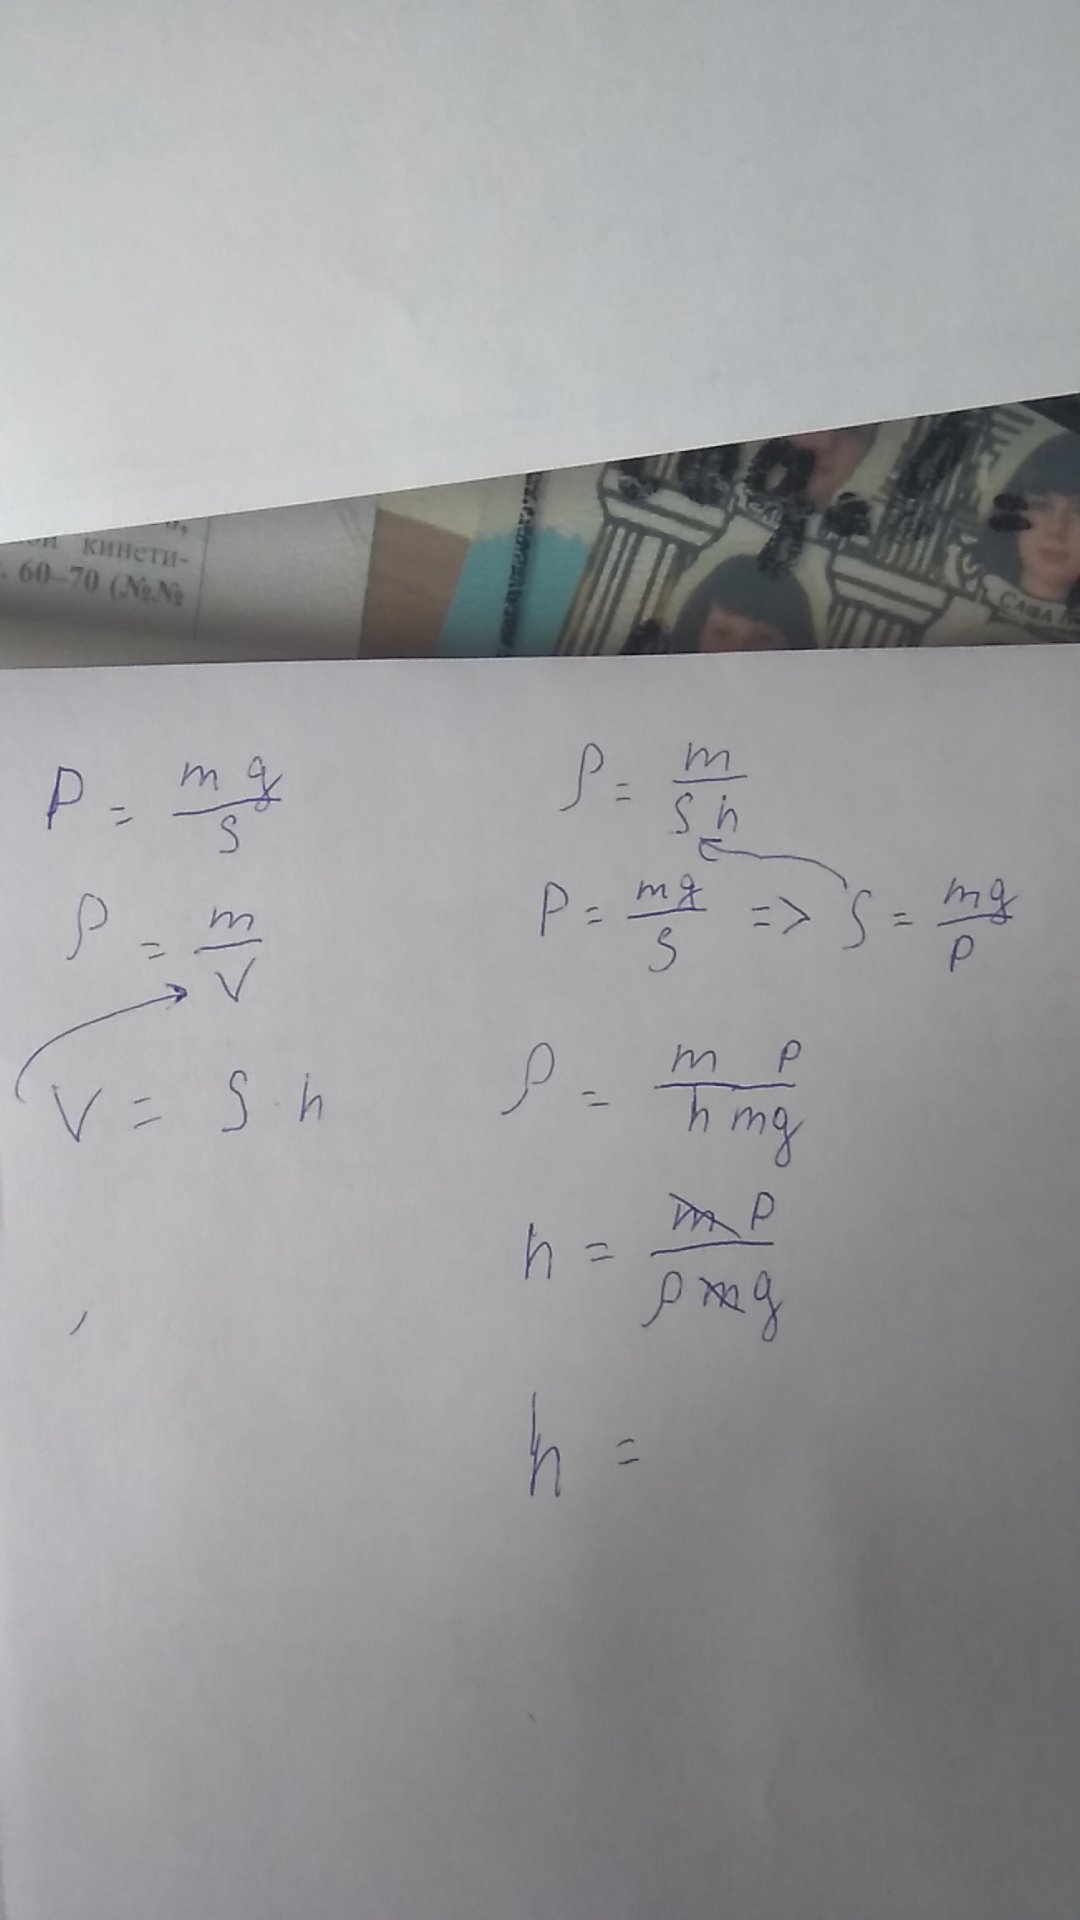 кинети-
60–70 (№№
САША
P = mg/S
ρ = m/V
V = S · h
ρ = m/(S h)
P = mg/S => S = mg/P
ρ = m P/(h mg)
h = m P/(ρ m g)
h =